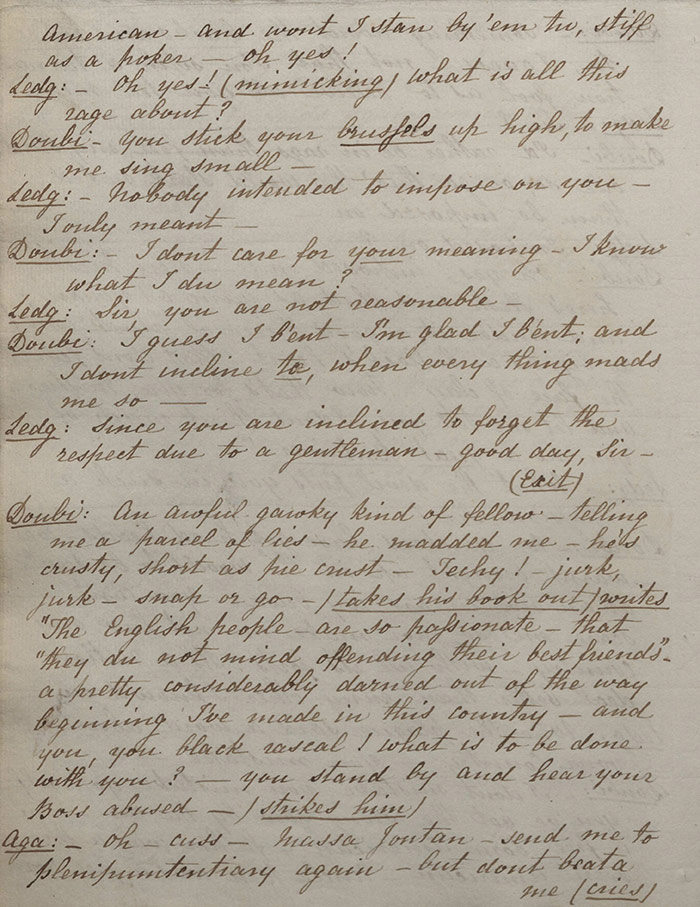 American - and wont I stan by 'em tu, stiff
as a poker - oh yes!
Ledg: - Oh yes! (mimicking) what is all this
rage about?
Doubi - you stick your brussels up high, to make
me sing small -
Ledg: - Nobody intended to impose on you -
I only meant -
Doubi: - I dont care for your meaning - I know
what I du mean?
Ledg: Sir, you are not reasonable -
Doubi: I guess I b'ent - I'm glad I b'ent; and
I dont incline to, when every thing mads
me so —
Ledg: Since you are inclined to forget the
respect due to a gentleman - good day, Sir -
(Exit)
Doubi: An awful gawky kind of fellow - telling
me a parcel of lies - he madded me - he's
crusty, short as pie crust - Techy! - jurk,
jurk - snap or go - (takes his book out) writes
"The English people - are so passionate - that
"they du not mind offending their best friends" -
a pretty considerably darned out of the way
beginning I've made in this country - and
you, you black rascal! what is to be done
with you? - you stand by and hear your
Boss abused - (strikes him)
Aga: - Oh - cuss - Massa Jontan - send me to
plenipuntentiary again - but dont beata
me (cries)